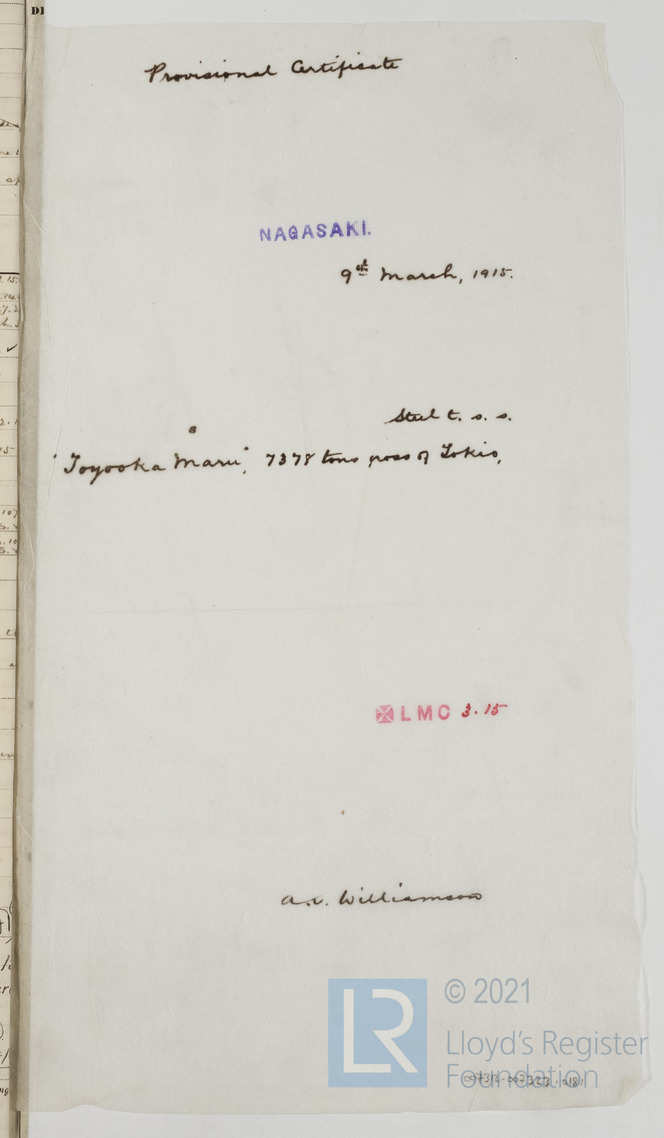 Provisional Certificate
NAGASAKI.
9th March, 1915.
Steel t. s. s.
"Toyooka Maru", 7378 tons gross of Tokio,
LMC 3.15
Williamson
LR
© 2021
Lloyd's Register
Foundation